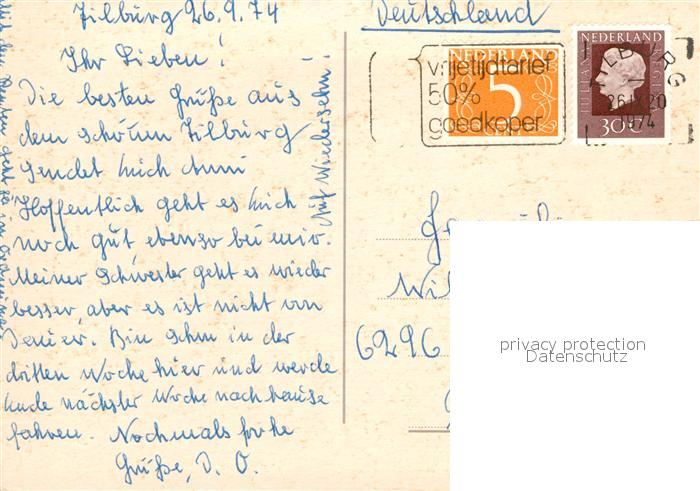 Tilburg 26.9.74
Ihr Lieben!
Die besten Grüße aus
dem schönen Tilburg
sendet Euch Anni
Hoffentlich geht es Euch
noch gut, ebenso bei mir.
Meiner Schwester geht es wieder
besser, aber es ist nicht von
Dauer. Bin schon in der
dritten Woche hier und werde
Ende nächster Woche nach hause
fahren. Nochmals frohe
Grüße, D. O.
Auf Wiedersehn!
Deutschland
NEDERLAND
5
vrijetijdtarief
50%
goedkoper
NEDERLAND
30c
TILBURG
26.IX.20
1974
Wil
6296
privacy protection
Datenschutz